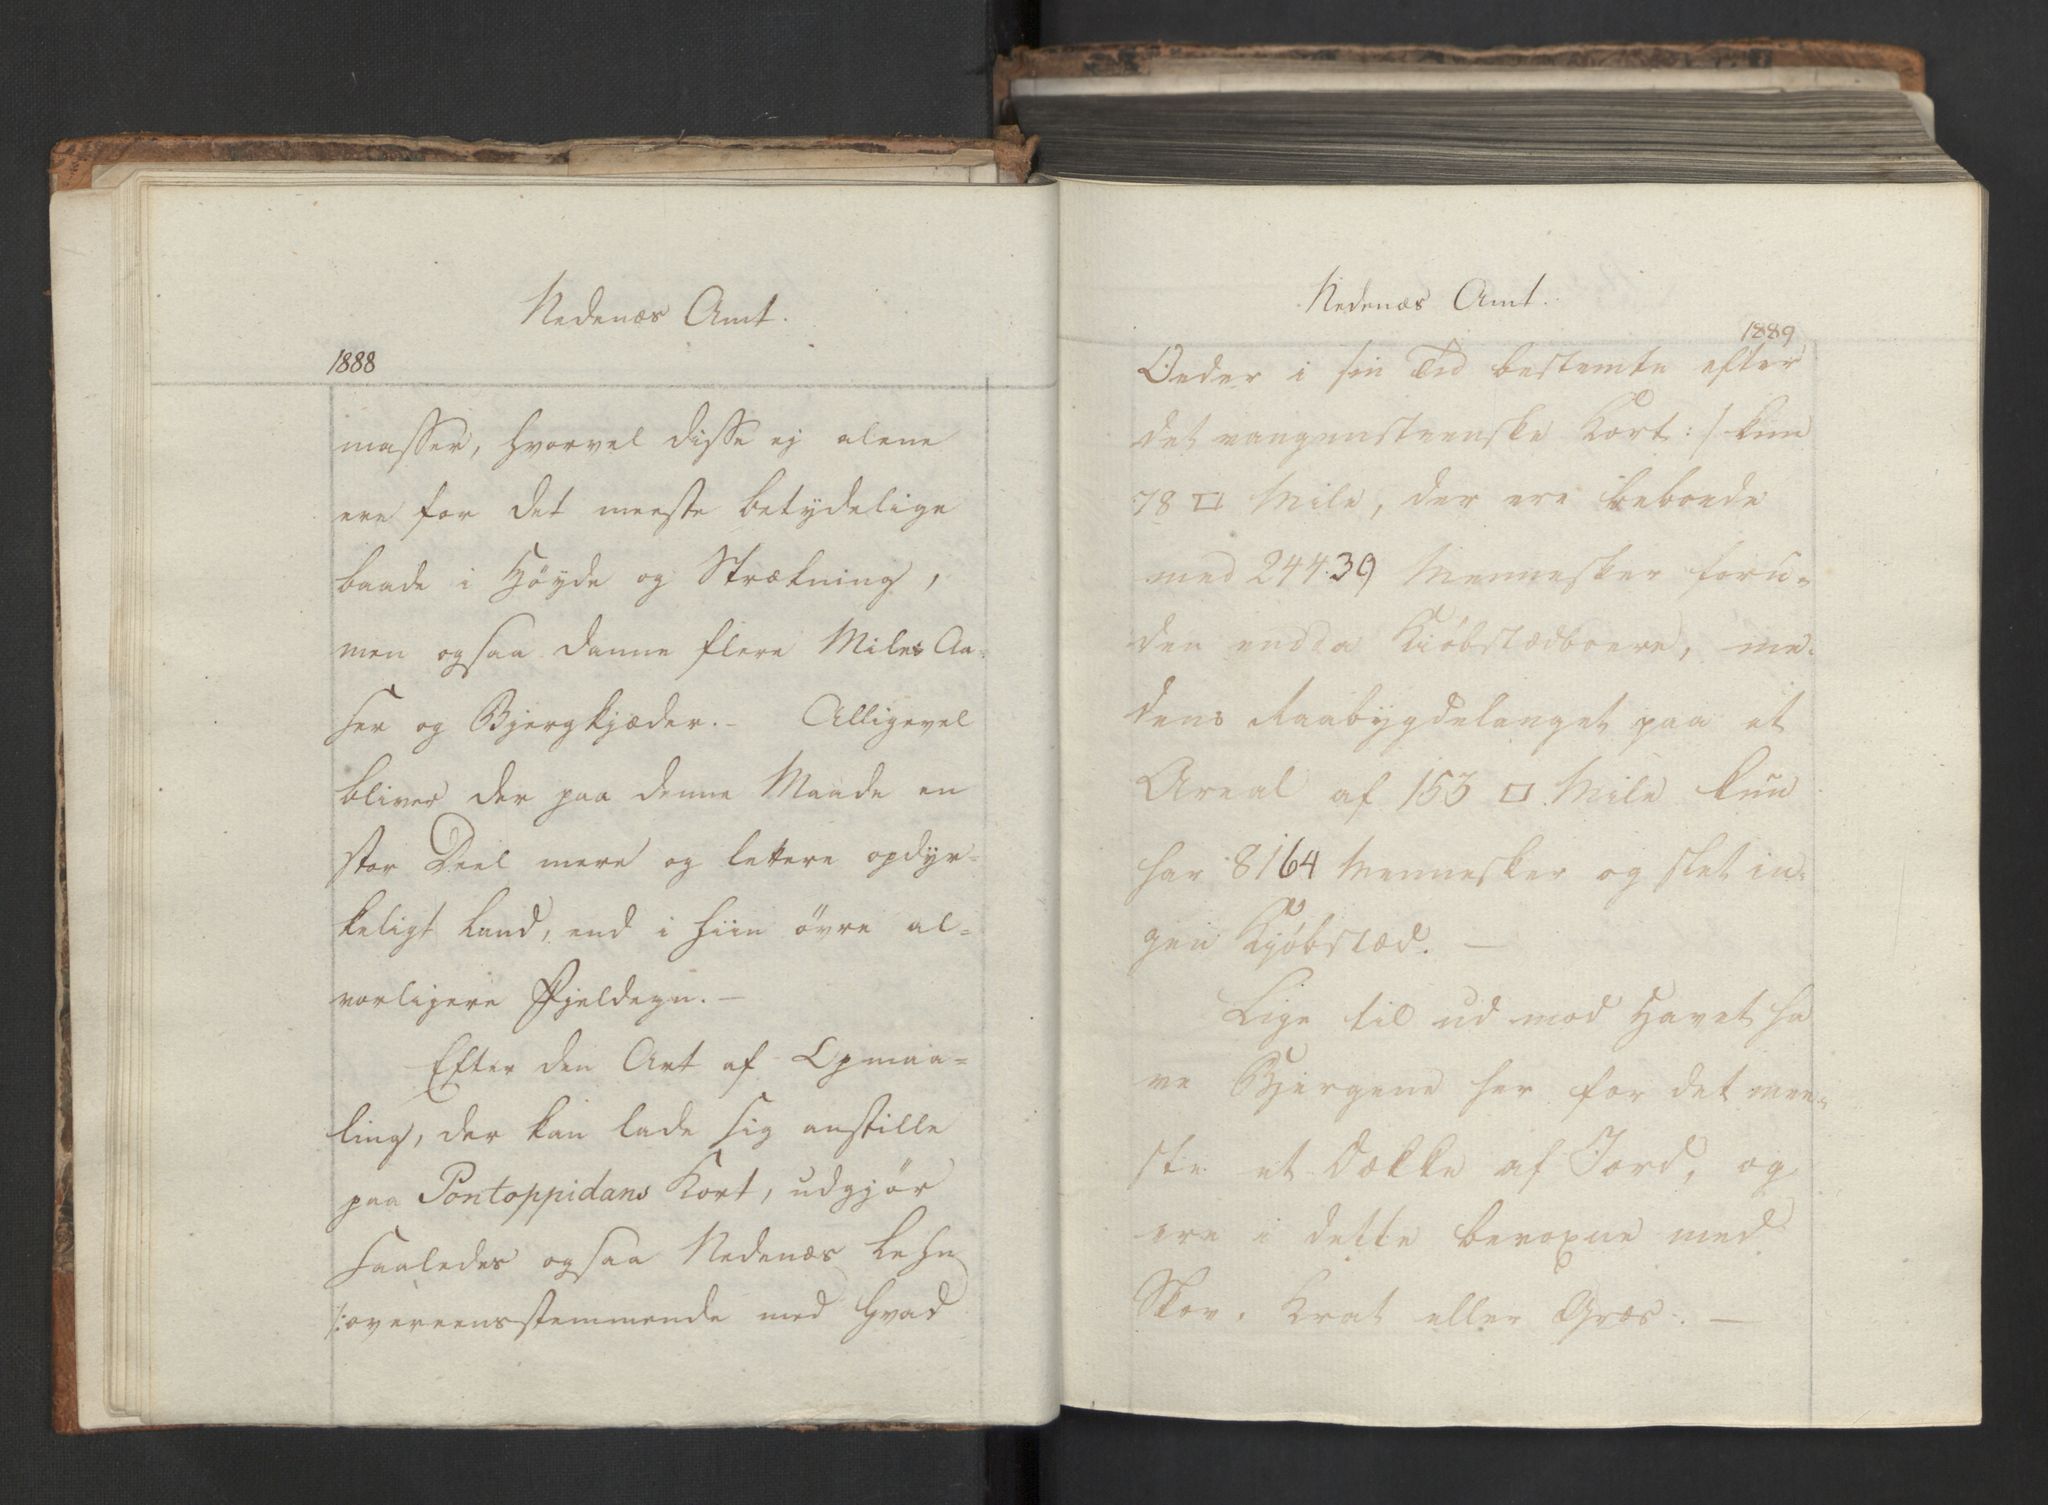 Nedenæs Amt.
1888
masser, hvorvel disse ej alene
ere for det meeste betydelige
baade i Höyde og Strækning,
men ogsaa danne flere Miles Aa-
ser og Bjergkjæder. — Alligevel
bliver der paa denne Maade en
stor Deel mere og lettere opdyr=
keligt Land, end i hiin övre al=
vorligere Fjeldegn. —
Efter den Art af Opmaa=
ling, der kan lade sig anstille
paa Pontoppidans Kort, udgjör
saaledes ogsaa Nedenæs Lehn
/: overeensstemmende med hvad
Nedenæs Amt.
1889
Oeder i sin Tid bestemte efter
det wangensteenske Kort :/ kun
78 □ Mile, der ere beboede
med 24439 Mennesker foru=
den endda Kiöbstædboere, me=
dens Raabygdelauget paa et
Areal af 153 □ Mile kun
har 8164 Mennesker og slet in=
gen Kjöbstæd. —
Lige til ud mod Havet ha
ve Bjergene her for det mee=
ste et Dække af Jord, og
ere i dette bevoxne med
Skov, Krat eller Græs. —